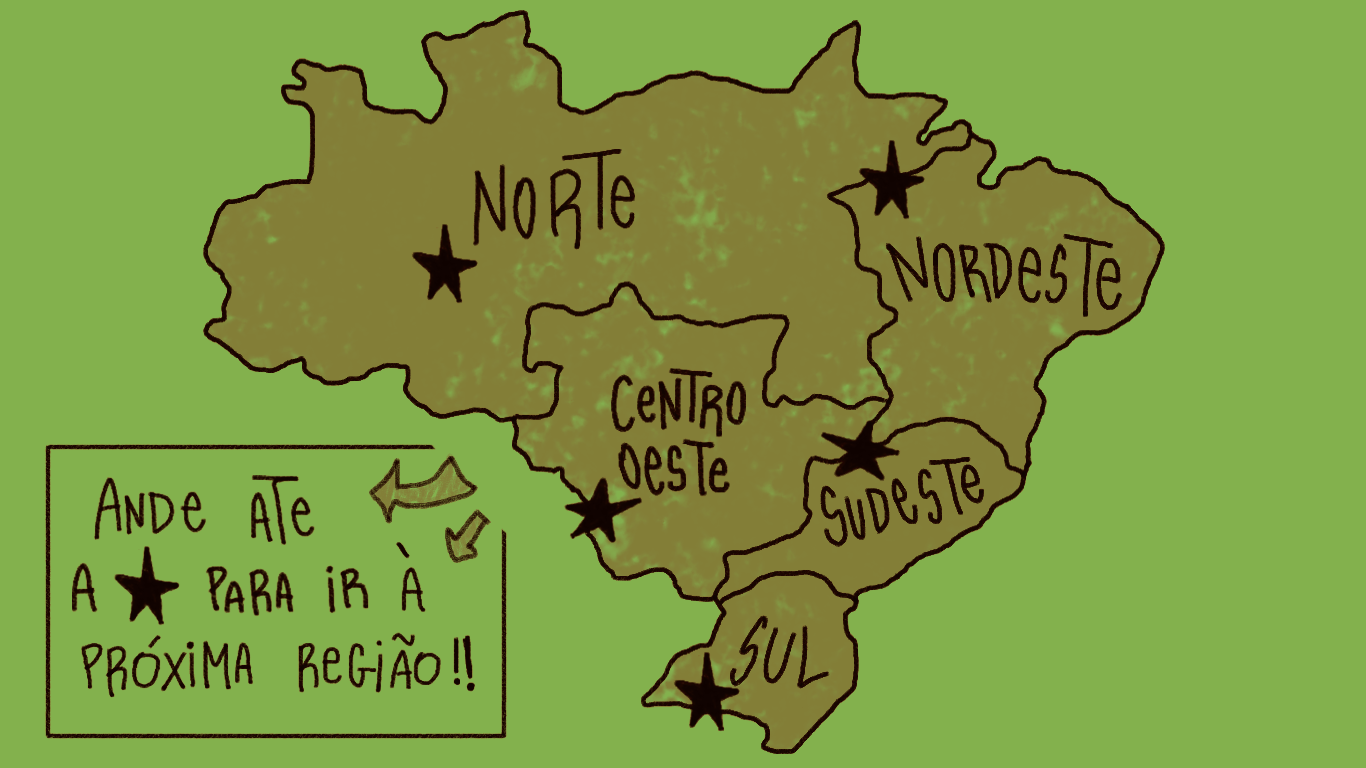 NORTE
NORDESTE
CENTRO
OESTE
SUDESTE
SUL
ANDE ATE
A ★ PARA IR À
PRÓXIMA REGIÃO!!